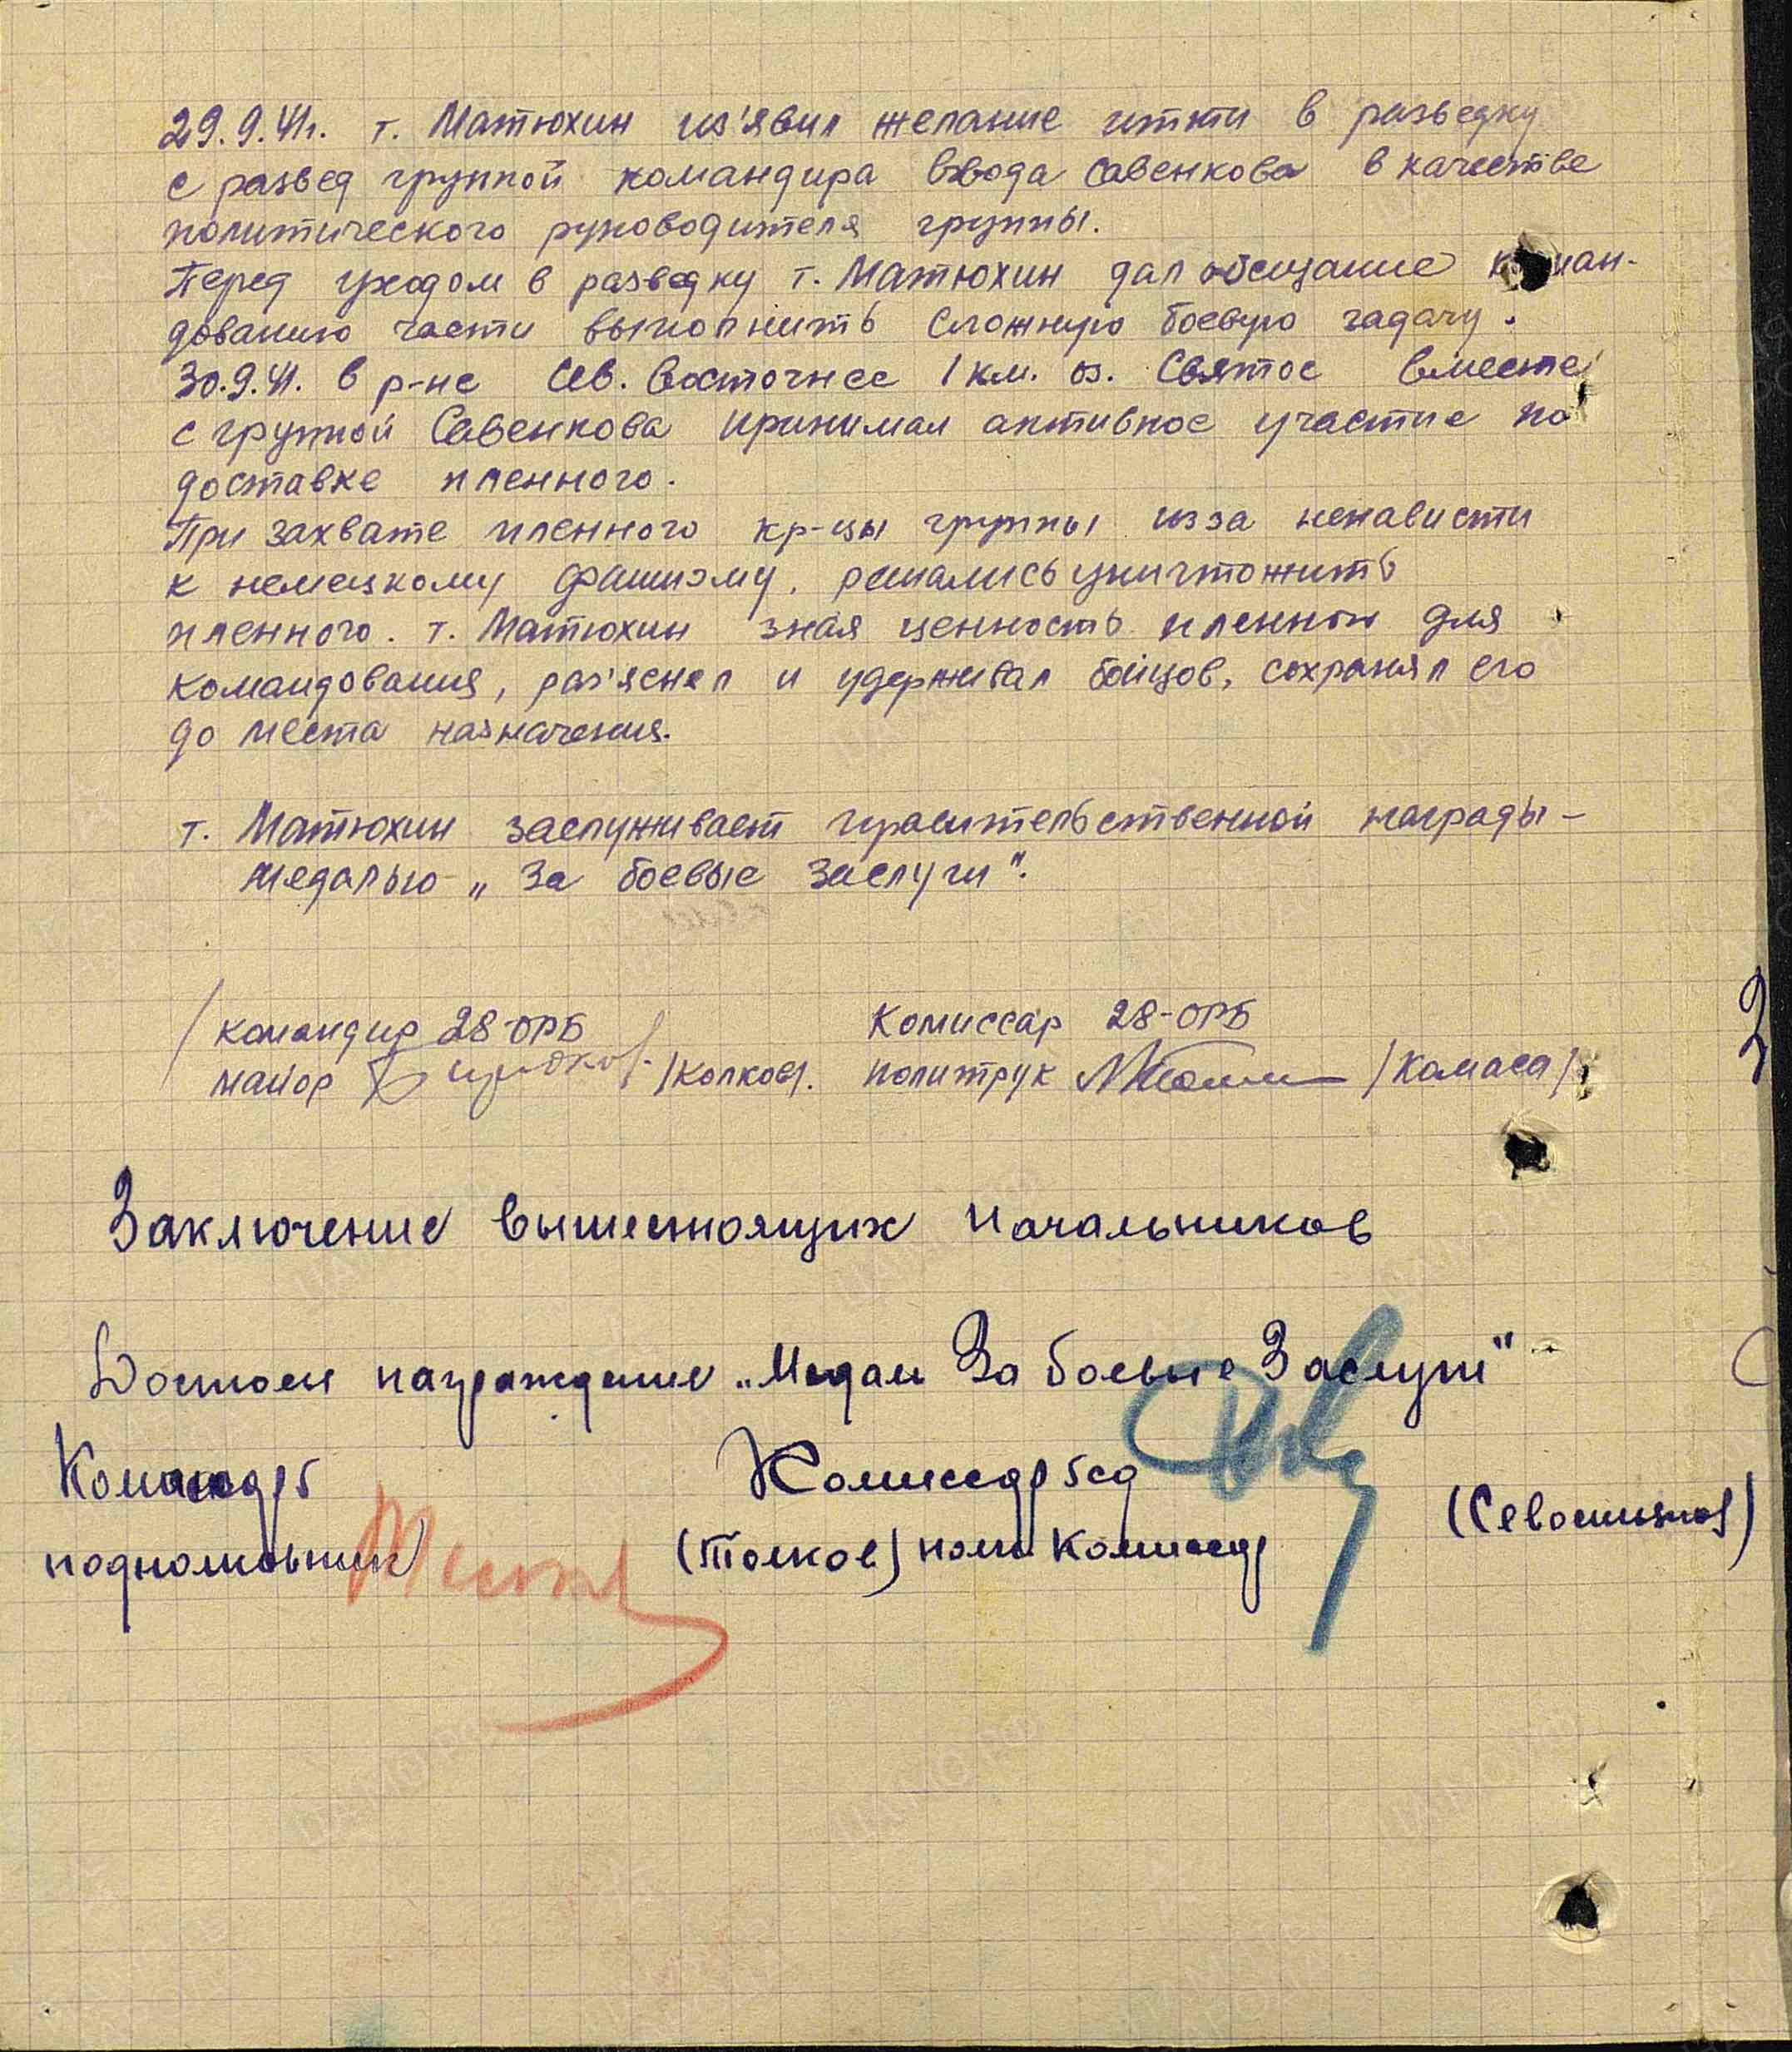 29.9.41г. т. Матюхин из'явил желание итти в разведку
с развед группой командира взвода Савенкова в качестве
политического руководителя группы.
Перед уходом в разведку т. Матюхин дал обещание коман-
дованию части выполнить сложную боевую задачу.
30.9.41. в р-не Сев. Восточнее 1 км. оз. Святое вместе
с группой Савенкова принимал активное участие по
доставке пленного.
При захвате пленного кр-цы группы изза ненависти
к немецкому фашизму, решались уничтожить
пленного. т. Матюхин зная ценность пленного для
командования, раз'яснял и удерживал бойцов, сохранял его
до места назначения.
т. Матюхин заслуживает правительственной награды -
медалью „За боевые заслуги".
/командир 28-ОРБ
Комиссар 28-ОРБ
майор
политрук /Камаса/
2
Заключение вышестоящих начальников
Достоен награждение „Медали За боевые Заслуги"
Командр 5
Комиссар 5 сд
подполковник
(Толков) полк Комиссар